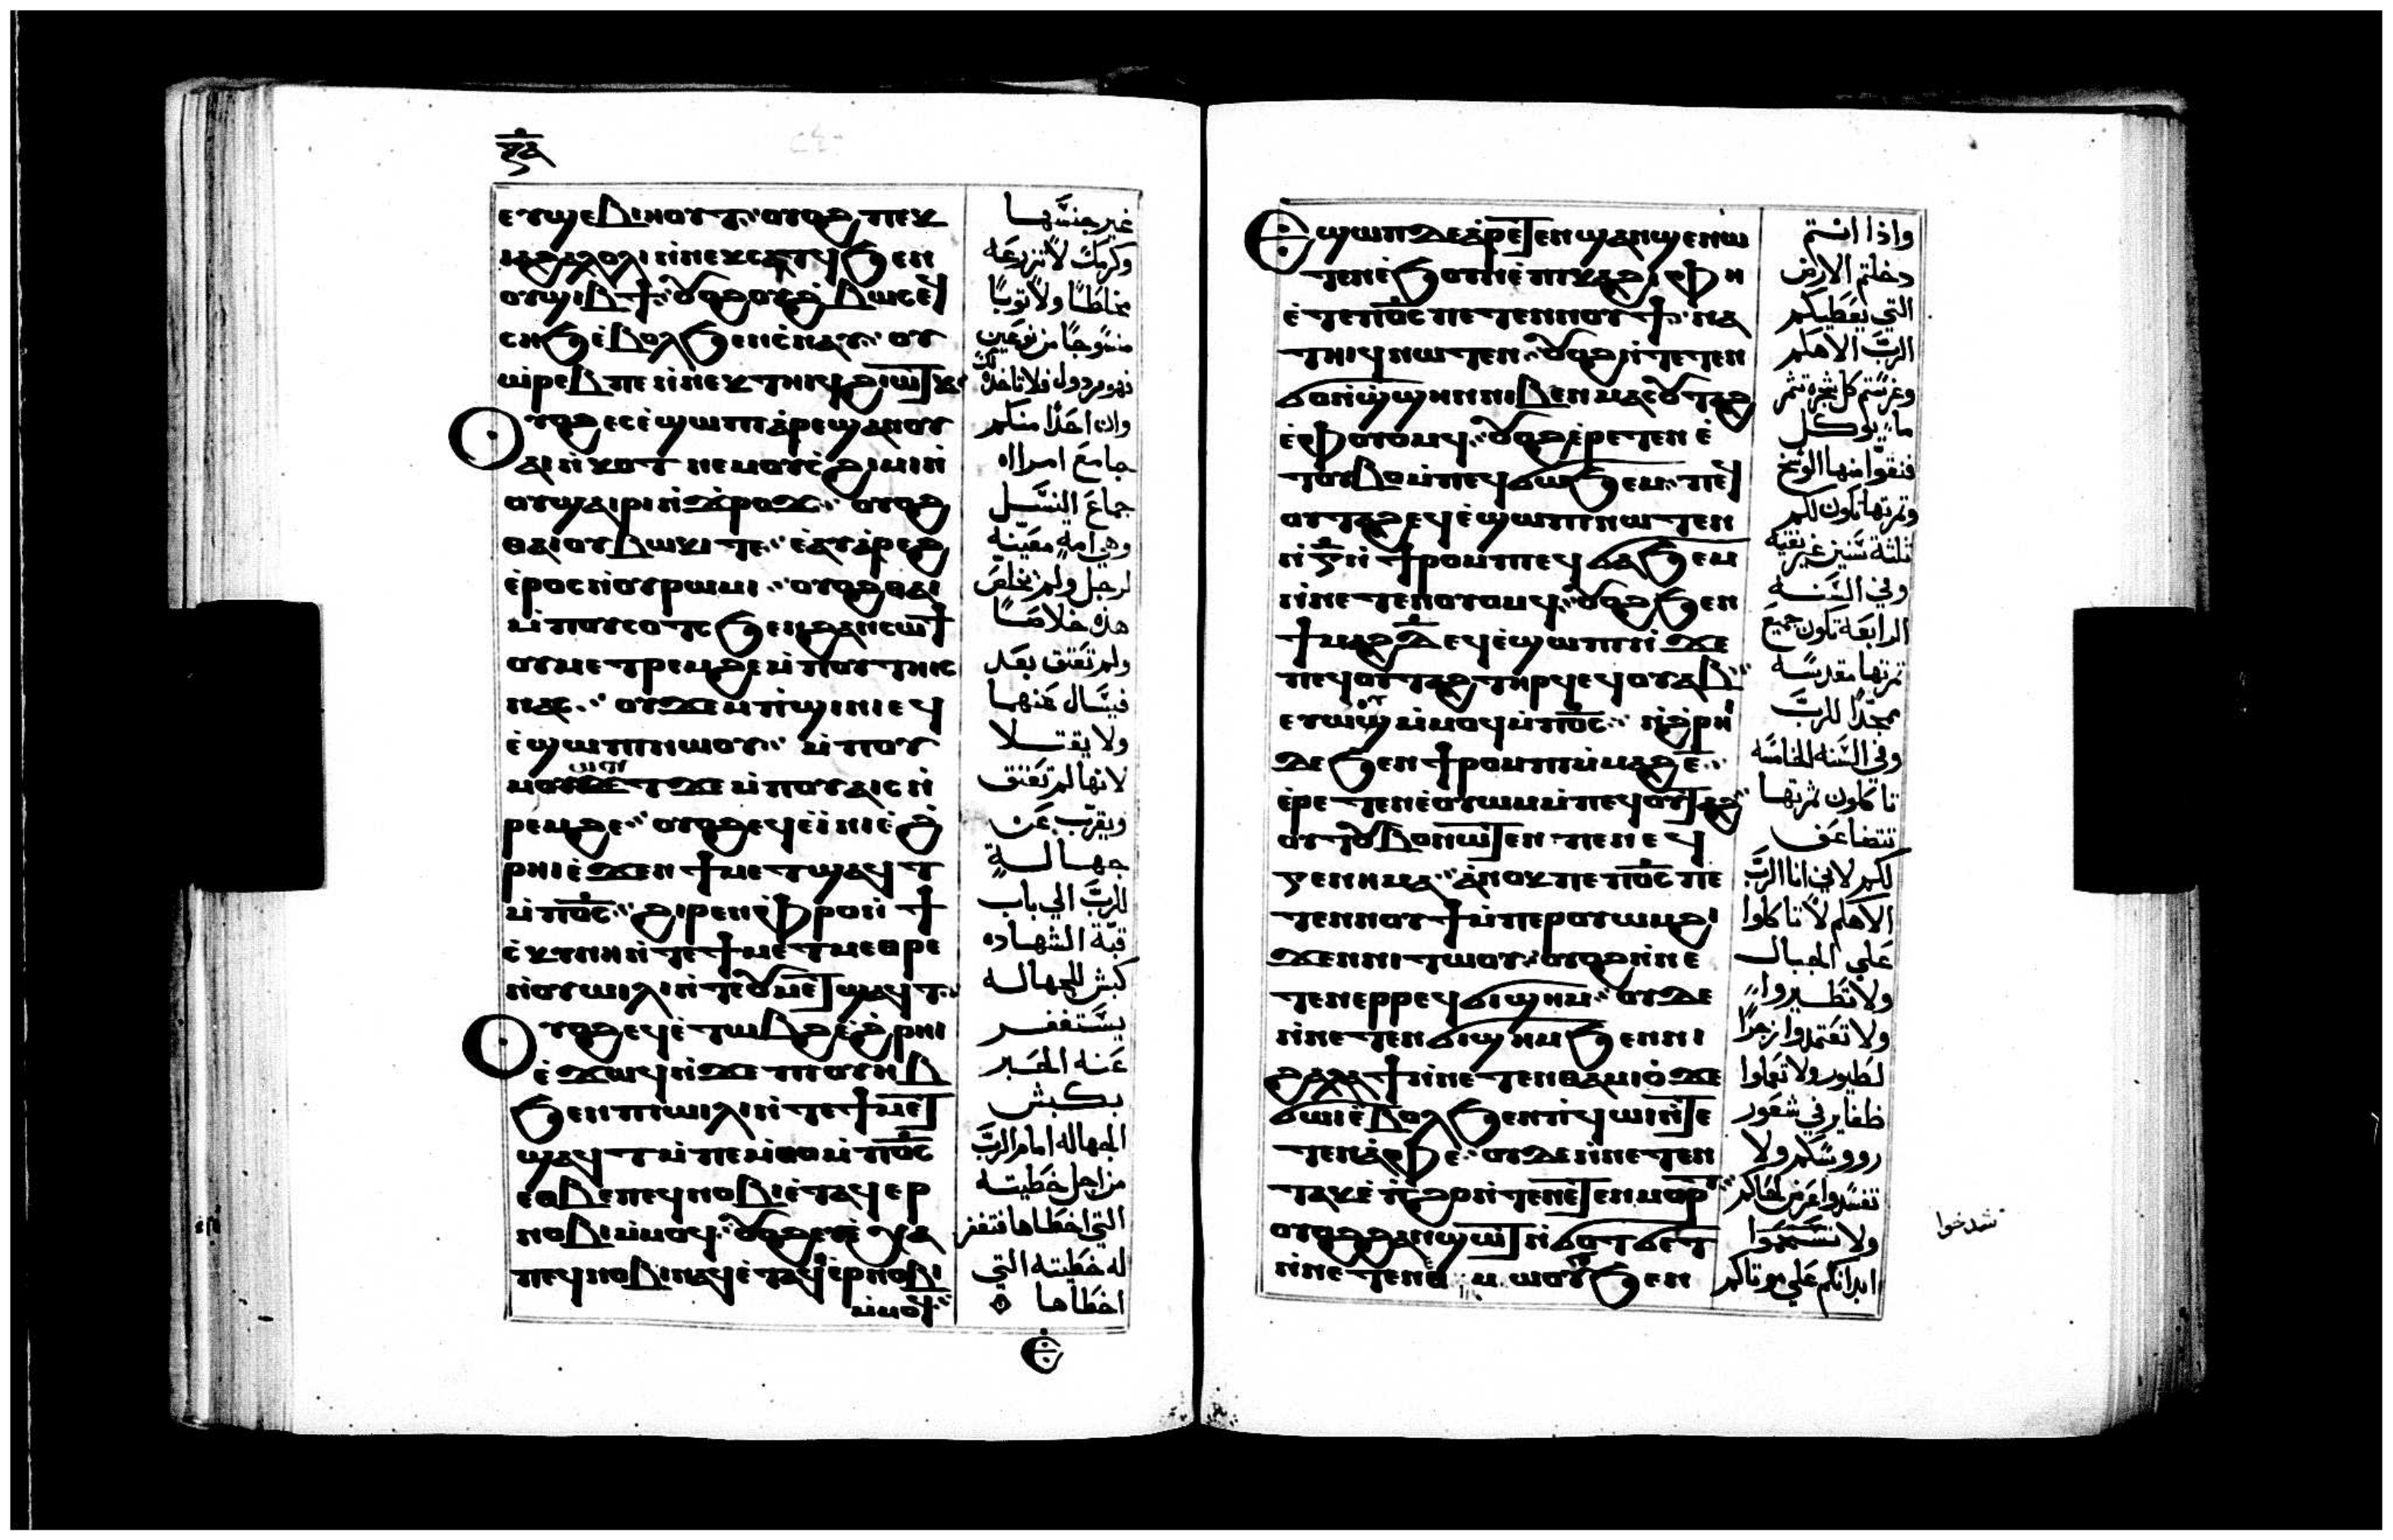 ⲉⲩϣⲉⲃⲓⲏⲟⲩⲧ ⲟⲩⲟϩ ⲡⲉⲕ
ⲓⲁϩⲁⲗⲟⲗⲓ ⲛ̀ⲛⲉⲕⲥⲁⲧϥ ϧⲉⲛ
ⲥⲏϧ ⲉ̀ⲃⲟⲗϧⲉⲛ ⲥ̀ⲛⲁⲩ ⲟⲩ
ⲁⲓⲛ̀ⲕⲟⲧ ⲛⲉⲙ ⲟⲩⲥ̀ϩⲓⲙⲓ ⲛ̀
ⲑⲁⲓ ⲟⲩⲃⲱⲕⲓ ⲧⲉ ⲉ̀ⲁⲩⲁ̀ⲣⲉϩ
ⲉ̀ⲣⲟⲥ ⲛ̀ⲟⲩⲣⲱⲙⲓ ⲟⲩⲟϩ ⲑⲁⲓ
ⲙ̀ⲡⲟⲩⲥⲟⲧⲥ ϧⲉⲛ ϩⲁⲛⲥⲱϯ
ⲟⲩⲙⲉⲧⲣⲉⲙϩⲉ ⲙ̀ⲡⲟⲩⲧⲏⲓⲥ
ⲛⲁⲥ ⲟⲩϫⲉⲙⲡ̀ϣⲓⲛⲓ ⲉϥ
ⲉ̀ϣⲱⲡⲓ ⲛⲱⲟⲩ ⲙ̀ⲡⲟⲩ
ⲣⲉⲙϩⲉ ⲟⲩⲟϩ ⲉϥⲉ̀ⲓ̀ⲛⲓ ⲉ̀ϩ̀
ⲣⲏⲓ ⲉ̀ϫⲉⲛ ϯⲙⲉⲧϣⲁϥⲧ
ⲙ̀ⲡⲟ̅ⲥ̅ ϩⲓⲣⲉⲛ ⲫ̀ⲣⲟ ⲛ̀ϯ
ⲥ̀ⲕⲩⲛⲏ ⲛ̀ⲧⲉ ϯⲙⲉⲧⲙⲉⲑⲣⲉ
ⲛ̀ⲟⲩⲱⲓⲗⲓ ⲛ̀ⲧⲉ ⲟⲩⲙⲉⲧϣⲁϥⲧ
ⲟⲩⲟϩ ⲉϥⲉ̀ⲧⲱⲃϩ ⲉ̀ϩ̀ⲣⲏⲓ
ⲉ̀ϫⲱϥ ⲛ̀ϫⲉ ⲡⲓⲟⲩⲏⲃ
ϧⲉⲛ ⲡⲓⲱⲓⲗⲓ ⲛ̀ⲧⲉ ϯⲙⲉⲧ
ϣⲁϥⲧ ⲙ̀ⲡⲉⲙ̀ⲑⲟ ⲙ̀ⲡⲟ̅ⲥ̅
ⲉⲑⲃⲉ ⲡⲉϥⲛⲟⲃⲓ ⲉ̀ⲧⲁϥⲉⲣ
ⲛⲟⲃⲓ ⲙ̀ⲙⲟϥ ⲟⲩⲟϩ ⲉⲩⲉ̀ⲭⲁ
ⲡⲉϥⲛⲟⲃⲓ ⲛⲁϥ ⲉ̀ⲧⲁϥⲉⲣⲛⲟⲃⲓ
ⲙ̀ⲙⲟϥ
غير جنسها
وكرمك لا تزرعه
مخاطا ولا ثوبا
منسوجا من نوعين
وان احدا منكم
جامع امراه
جماع النسل
وهي امه معينه
لرجل ولم تخلص
هذه خلاصا
ولم تعتق بعد
فيسال عنهما
ولا يقتلا
لانها لم تعتق
ويقرب عن
جهالة
للرب الي باب
قبة الشهاده
كبش للجهاله
يستغفر
عنه الحبر
بكبش
الجهاله امام الرب
من اجل خطيته
التي اخطاها فتغفر
له خطيته التي
اخطاها
ⲉϣⲱⲡ ⲇⲉ ⲁ̀ⲣⲉⲧⲉⲛϣⲁⲛϣⲉⲛⲱ
ⲧⲉⲛ ⲉ̀ϧⲟⲩⲛ ⲉ̀ⲡⲓⲕⲁϩⲓ ⲫⲏ
ⲉ̀ⲧⲉ ⲡⲟ̅ⲥ̅ ⲡⲉⲧⲉⲛⲛⲟⲩϯ ⲛⲁ
ⲧⲏⲓϥ ⲛⲱⲧⲉⲛ ⲟⲩⲟϩ ⲛ̀ⲧⲉⲧⲉⲛ
ϭⲟ ⲛ̀ϣ̀ϣⲏⲛ ⲛⲓⲃⲉⲛ ⲙⲁⲥⲟⲩⲧⲁϩ
ⲉ̀ⲫ̀ⲟⲩⲟⲙϥ ⲟⲩⲟϩ ⲉ̀ⲣⲉⲧⲉⲛⲉ̀
ⲧⲟⲩⲃⲟ ⲙ̀ⲡⲉϥϭⲱϧⲉⲙ ⲡⲉϥ
ⲟⲩⲧⲁϩ ⲉϥⲉ̀ϣⲱⲡⲓ ⲛⲱⲧⲉⲛ
ⲛ̀ⲅ̅ ⲛ̀ϯⲣⲟⲙⲡⲓ ⲉϥϭⲁϧⲉⲙ
ⲛ̀ⲛⲉⲧⲉⲛⲟⲩⲟⲙϥ ⲟⲩⲟϩ ϧⲉⲛ
ϯⲙⲁϩⲇ̅ ⲉϥⲉ̀ϣⲱⲡⲓ ⲛ̀ϫⲉ
ⲡⲉϥⲟⲩⲧⲁϩ ⲧⲏⲣϥ ⲉϥⲟⲩⲁⲃ
ⲉⲩⲱⲟⲩ ⲙ̀ⲙⲟϥ ⲙ̀ⲡⲟ̅ⲥ̅ ⲛ̀ϩ̀ⲣⲏⲓ
ⲇⲉ ϧⲉⲛ ϯⲣⲟⲙⲡⲓ ⲙ̀ⲙⲁϩⲉ̅
ⲉ̀ⲣⲉⲧⲉⲛⲉ̀ⲟⲩⲱⲙ ⲙ̀ⲡⲉϥⲟⲩⲧⲁϩ
ⲅⲉⲛⲏⲙⲁ ⲁ̀ⲛⲟⲕ ⲡⲉ ⲡⲟ̅ⲥ̅ ⲡⲉ
ⲧⲉⲛⲛⲟⲩϯ ⲙ̀ⲡⲉⲣⲟⲩⲱⲙ ϩⲓ
ϫⲉⲛ ⲛⲓⲧⲱⲟⲩ ⲟⲩⲟϩ ⲛ̀ⲛⲉ
ⲧⲉⲛⲉⲣⲣⲉϥϭⲓϣⲏⲙ ⲟⲩⲇⲉ
ⲛ̀ⲛⲉⲧⲉⲛϭⲓϣⲏⲙ ϧⲉⲛ ⲛⲓ
ϩⲁⲗⲁϯ ⲛ̀ⲛⲉⲧⲉⲛⲑⲁⲙⲓⲟ̀ ϫⲉ
ϭⲱⲓ ⲉ̀ⲃⲟⲗϧⲉⲛ ⲡ̀ϥⲱⲓ ⲛ̀ⲧⲉ
ⲧⲉⲛⲁ̀ⲫⲉ ⲟⲩⲇⲉ ⲛ̀ⲛⲉⲧⲉⲛ
ⲧⲁⲕⲉ ⲡ̀ϩⲟ ⲛ̀ⲧⲉⲛⲉⲧⲉⲛⲙⲟⲣⲧ
ⲟⲩⲟϩ ϩⲁⲛϣⲱⲧ ⲛ̀ϭⲟⲧϭⲉⲧ
واذا انتم
دخلتم الارض
التي يعطيكم
الرب الاهكم
وغرستم كل شجره تثمر
ما يوكل
فنقوا منها الوسخ
وثمرتها تكون لكم
ثلثة سنين غير نقيه
وفي السنه
الرابعة تكون جميع
ثمرتها مقدسه
مجدا للرب
وفي السنه الخامسه
تاكلون ثمرتها
تتضاعف
لكم لاني انا الرب
الاهكم لا تاكلوا
علي الجبال
ولا تطيروا
ولا تعتمدوا زجرا
لطيور ولا تعملوا
ظفاير في شعور
رووسكم ولا
تفسدوا عرض لحاكم
ولا
ابدانكم علي موتاكم
شدخوا